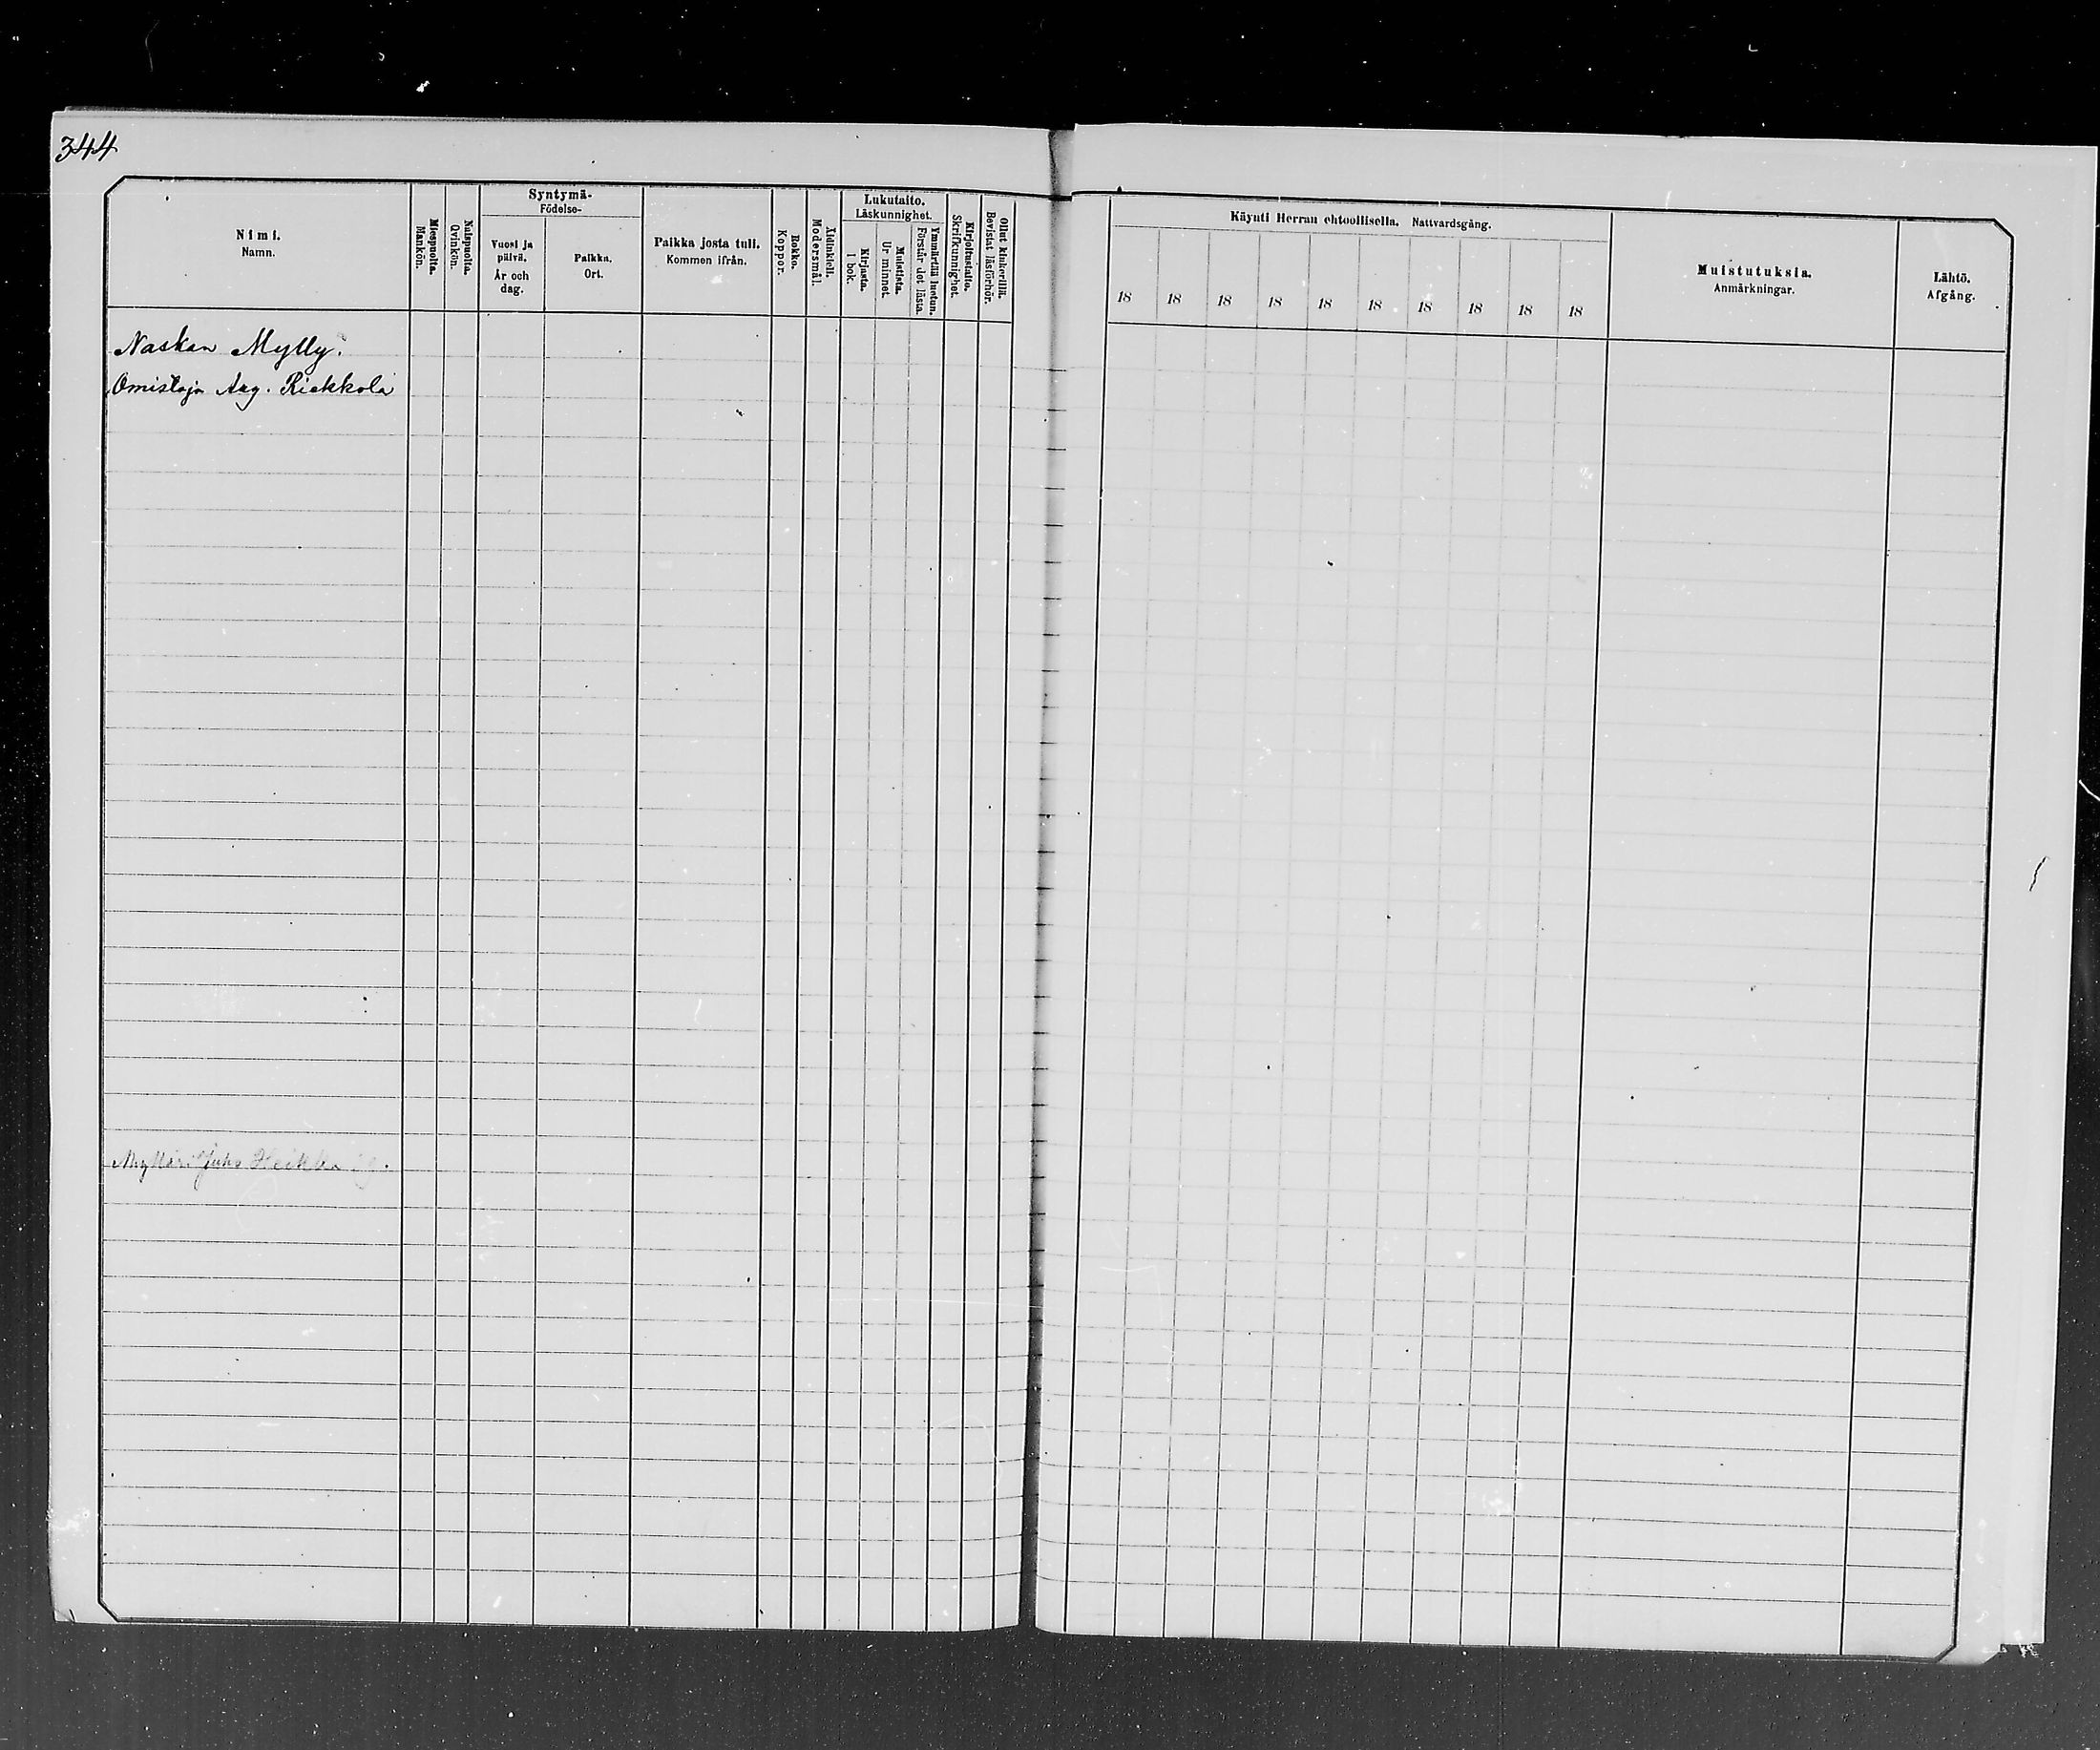 344
Nimi.
Namn.
Miespuolta.
Mankön.
Naispuolta.
Qvinkön.
Syntymä-
Födelse-
Vuosi ja
päivä.
År och
dag.
Paikka.
Ort.
Paikka josta tuli.
Kommen ifrån.
Rokko.
Koppor.
Äidinkieli.
Modersmål.
Lukutaito.
Läskunnighet.
Kirjasta.
I bok.
Muistista.
Ur minnet.
Ymmärtää luetun.
Förstår det lästa.
Kirjoitustaito.
Skrifkunnighet.
Ollut kinkerillä.
Bevistat läsförhör.
Käynti Herran ehtoollisella. Nattvardsgång.
18 18 18 18 18 18 18 18 18 18
Muistutuksia.
Anmärkningar.
Lähtö.
Afgång.
Naskan Mylly.
Omistaja Aug. Riekkola
Mylläri Juho Heikki